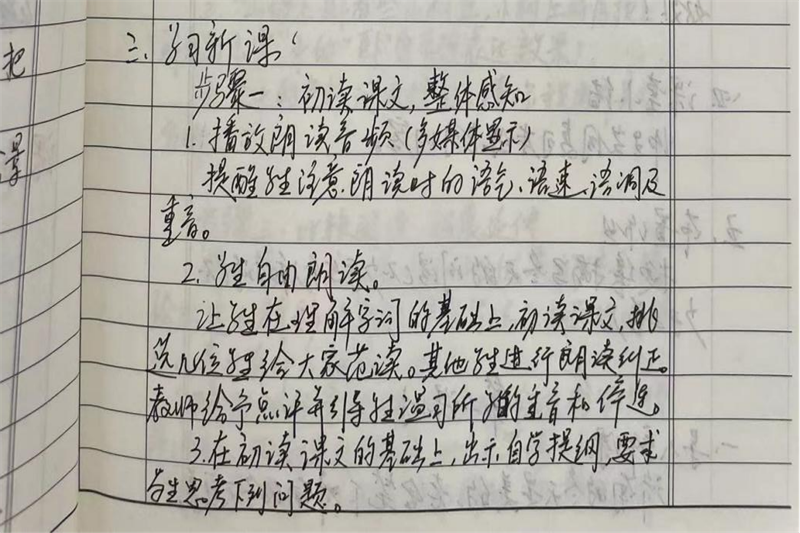 把
三、学习新课：
步骤一：初读课文，整体感知
1.播放朗读音频（多媒体显示）
提醒学生注意朗读时的语气、语速、语调及
重音。
2.学生自由朗读。
让学生在理解字词的基础上，初读课文，挑
选几位学生给大家范读。其他学生进行朗读纠正。
教师给予点评并引导学生温习所学的重音和停连。
3.在初读课文的基础上，出示自学提纲，要求
学生思考下列问题。